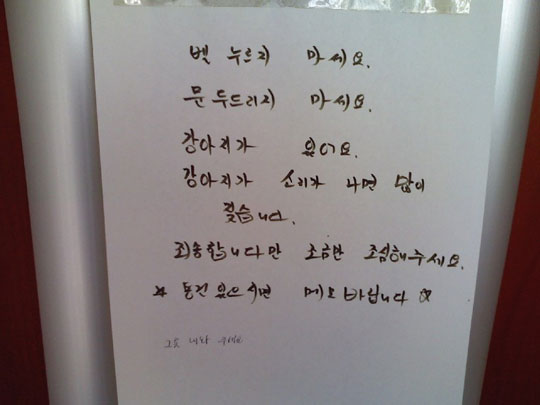 벳 누르지 마세요.
문 두드리지 마세요.
강아지가 있어요.
강아지가 소리가 나면 많이
짖습니다.
죄송합니다만 조금만 조심해주세요.
☆ 용건 있으시면 메모바랍니다 ☆